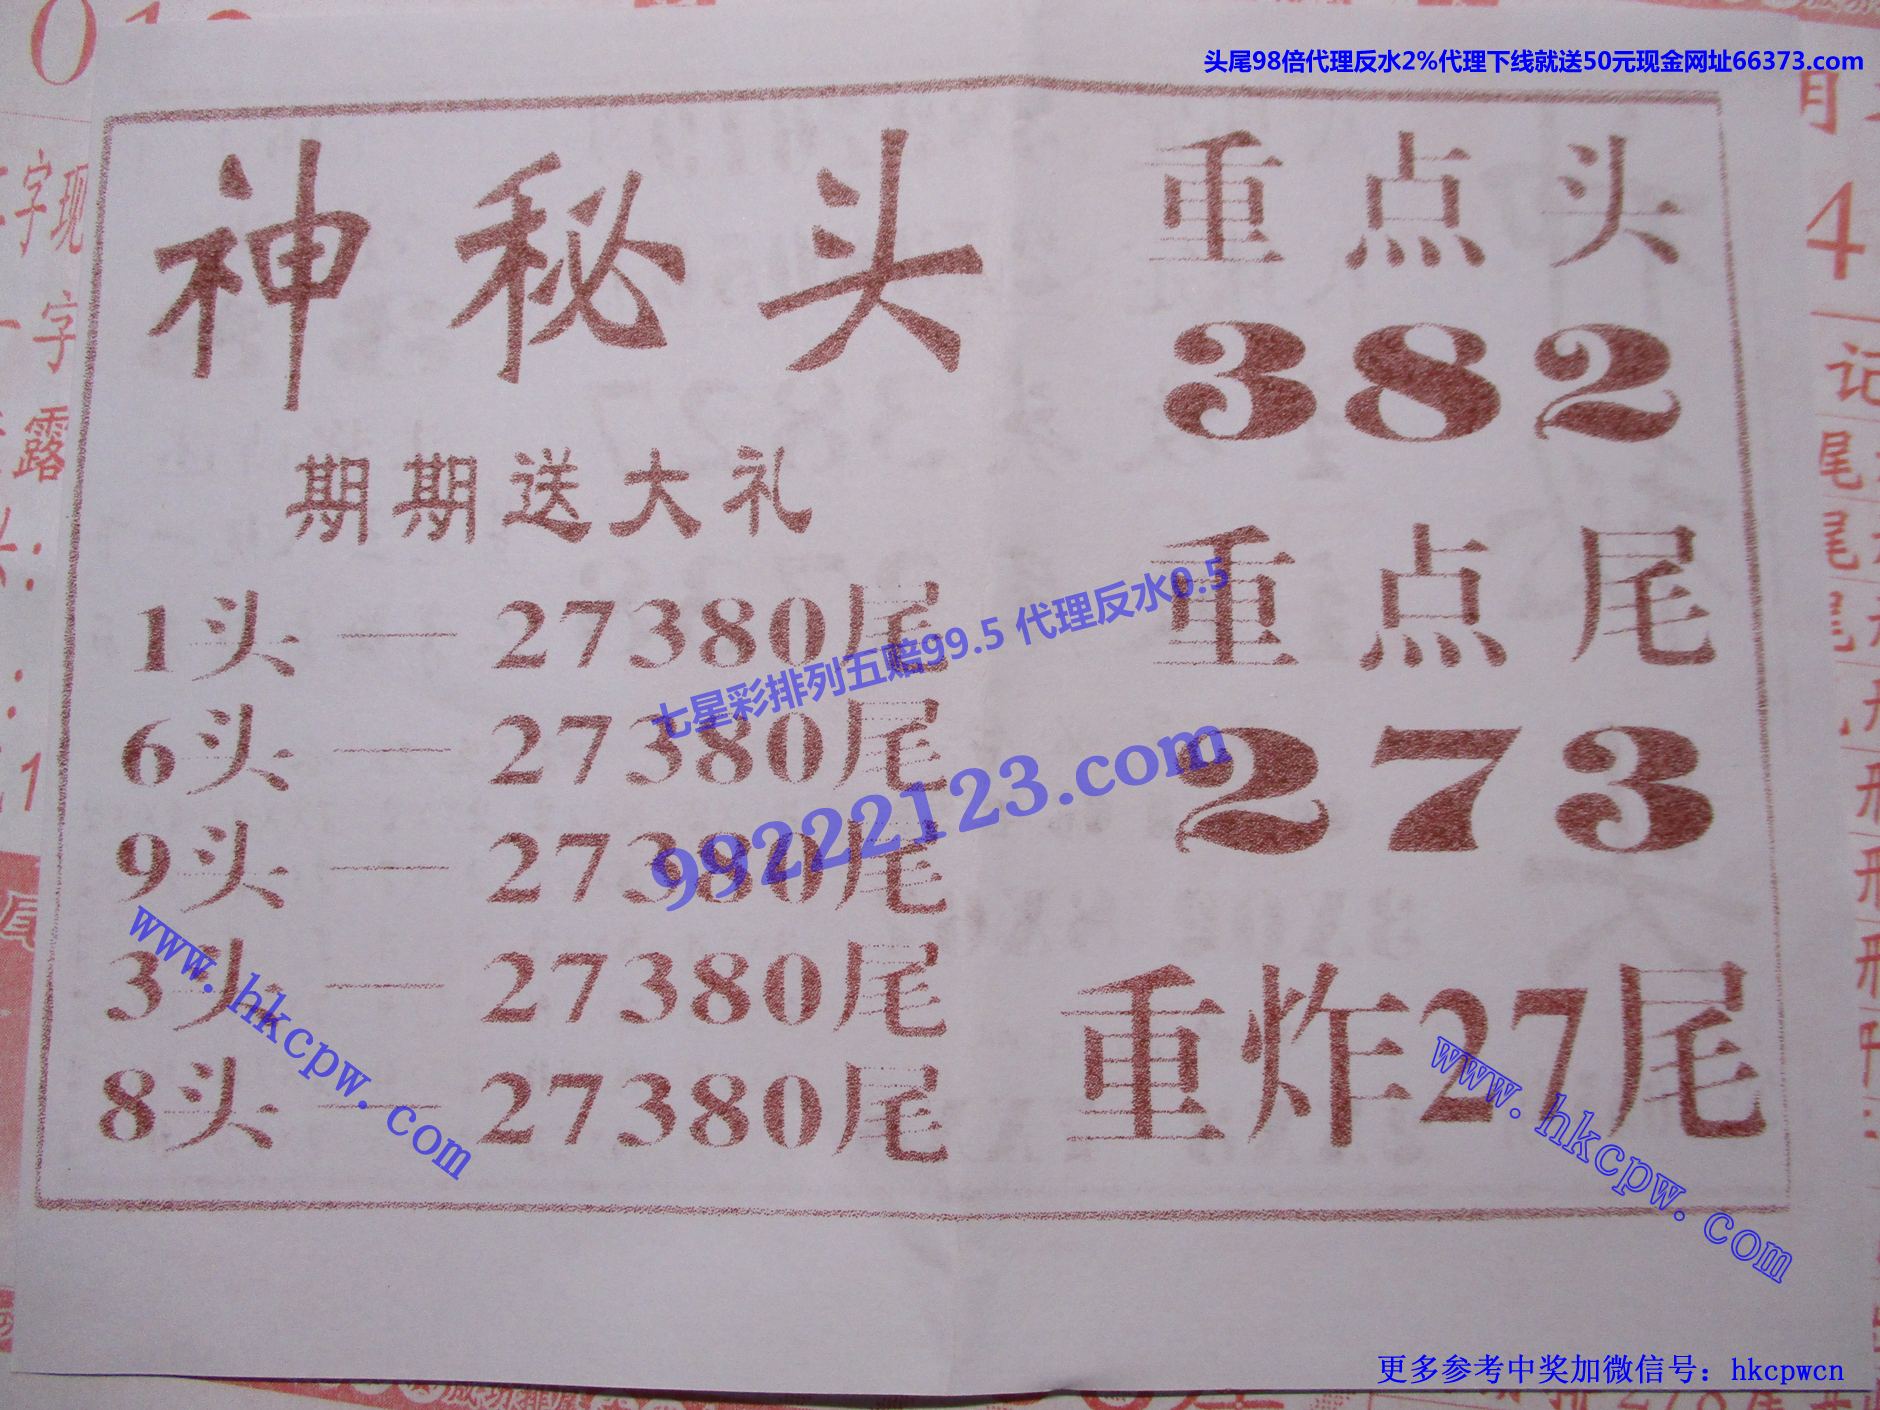 头尾98倍代理反水2%代理下线就送50元现金网址66373.com
神秘头
期期送大礼
1头 — 27380尾
6头 — 27380尾
9头 — 27380尾
3头 — 27380尾
8头 — 27380尾
重点头
382
重点尾
273
重炸27尾
七星彩排列五赔99.5 代理反水0.5
99222123.com
www.hkcpw.com
www.hkcpw.com
更多参考中奖加微信号：hkcpwcn
字现
字
露
4
记
尾
尾
尾